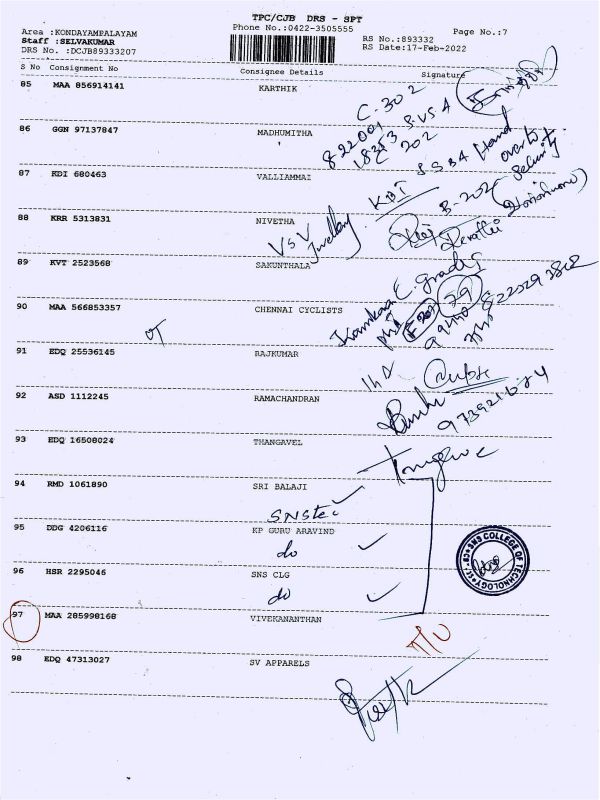 TPC/CJB DRS - SPT
Area :KONDAYAMPALAYAM Phone No.:0422-3505555 Page No.:7
Staff :SELVAKUMAR RS No.:893332
DRS No. :DCJB89333207 RS Date:17-Feb-2022
S No Consignment No Consignee Details Signature
85 MAA 856914141 KARTHIK
C-302
86 GGN 97137847 MADHUMITHA
S.VSA
202
SSBA Hand over to Security
87 KDI 680463 VALLIAMMAI
KBI
B-202
88 KRR 5313831 NIVETHA
VSV Jwellary
Revathi
89 KVT 2523568 SAKUNTHALA
90 MAA 566853357 CHENNAI CYCLISTS
OT
91 EDQ 25536145 RAJKUMAR
92 ASD 1112245 RAMACHANDRAN
93 EDQ 16508024 THANGAVEL
94 RMD 1061890 SRI BALAJI
SNStec
95 DDG 4206116 KP GURU ARAVIND
do
96 HSR 2295046 SNS CLG
do
SNS COLLEGE OF TECHNOLOGY
97 MAA 285998168 VIVEKANANTHAN
98 EDQ 47313027 SV APPARELS